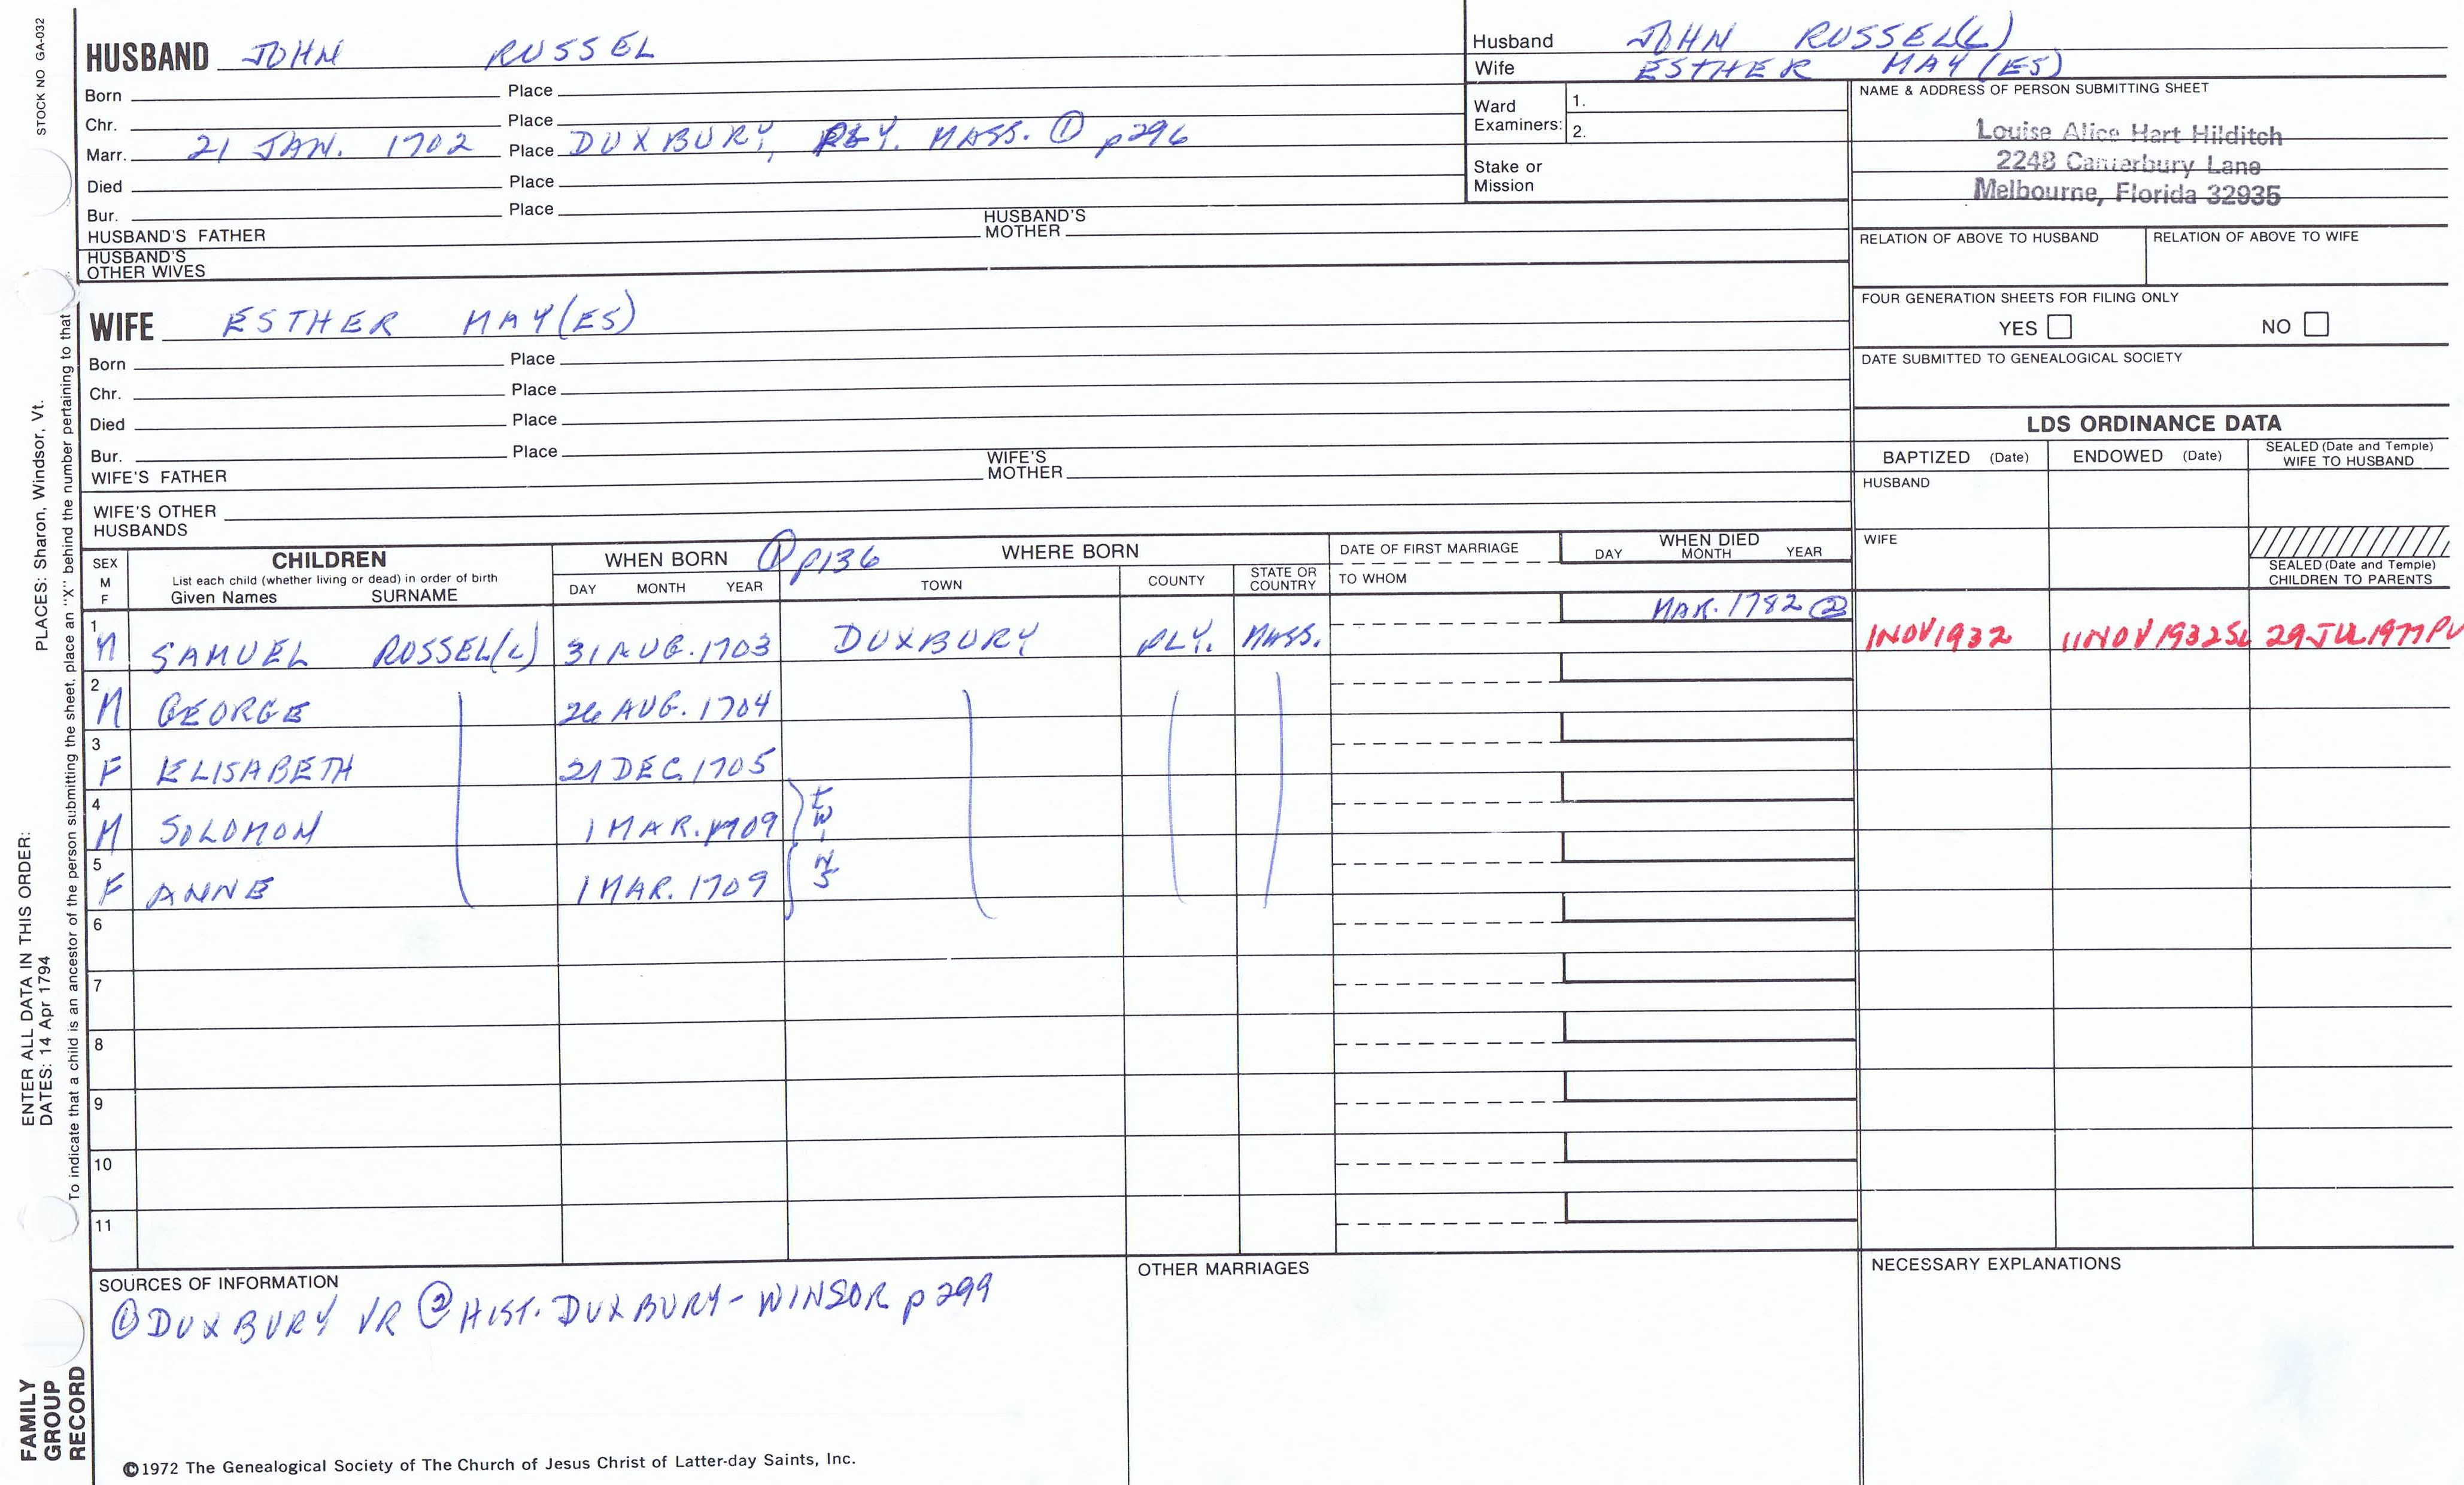 STOCK NO GA-032
HUSBAND JOHN RUSSEL
Born Place
Chr. Place
Marr. 21 JAN. 1702 Place DUXBURY, PLY. MASS. ① p296
Died Place
Bur. Place
HUSBAND'S FATHER HUSBAND'S MOTHER
HUSBAND'S OTHER WIVES
Husband JOHN RUSSEL(L)
Wife ESTHER MAY(ES)
Ward Examiners: 1.
2.
Stake or Mission
NAME & ADDRESS OF PERSON SUBMITTING SHEET
Louise Alice Hart Hilditch
2248 Canterbury Lane
Melbourne, Florida 32935
RELATION OF ABOVE TO HUSBAND RELATION OF ABOVE TO WIFE
FOUR GENERATION SHEETS FOR FILING ONLY
YES NO
DATE SUBMITTED TO GENEALOGICAL SOCIETY
WIFE ESTHER MAY(ES)
Born Place
Chr. Place
Died Place
Bur. Place
WIFE'S FATHER WIFE'S MOTHER
WIFE'S OTHER HUSBANDS
LDS ORDINANCE DATA
BAPTIZED (Date) ENDOWED (Date) SEALED (Date and Temple) WIFE TO HUSBAND
HUSBAND
WIFE
SEALED (Date and Temple) CHILDREN TO PARENTS
SEX M F
CHILDREN
List each child (whether living or dead) in order of birth
Given Names SURNAME
WHEN BORN ① p136 WHERE BORN
DAY MONTH YEAR TOWN COUNTY STATE OR COUNTRY
DATE OF FIRST MARRIAGE
TO WHOM
WHEN DIED
DAY MONTH YEAR
1 M SAMUEL RUSSEL(L) 31 AUG. 1703 DUXBURY PLY. MASS. MAR. 1782 ② 1NOV1932 11NOV1932SL 29JUL1977PV
2 M GEORGE 26 AUG. 1704
3 F ELISABETH 21 DEC. 1705
4 M SOLOMON 1 MAR. 1709 TWI
5 F ANNE 1 MAR. 1709 NS
6
7
8
9
10
11
SOURCES OF INFORMATION
① DUXBURY VR ② HIST. DUXBURY - WINSOR p299
OTHER MARRIAGES
NECESSARY EXPLANATIONS
©1972 The Genealogical Society of The Church of Jesus Christ of Latter-day Saints, Inc.
PLACES: Sharon, Windsor, Vt.
ENTER ALL DATA IN THIS ORDER:
DATES: 14 Apr 1794
To indicate that a child is an ancestor of the person submitting the sheet, place an "X" behind the number pertaining to that
FAMILY
GROUP
RECORD